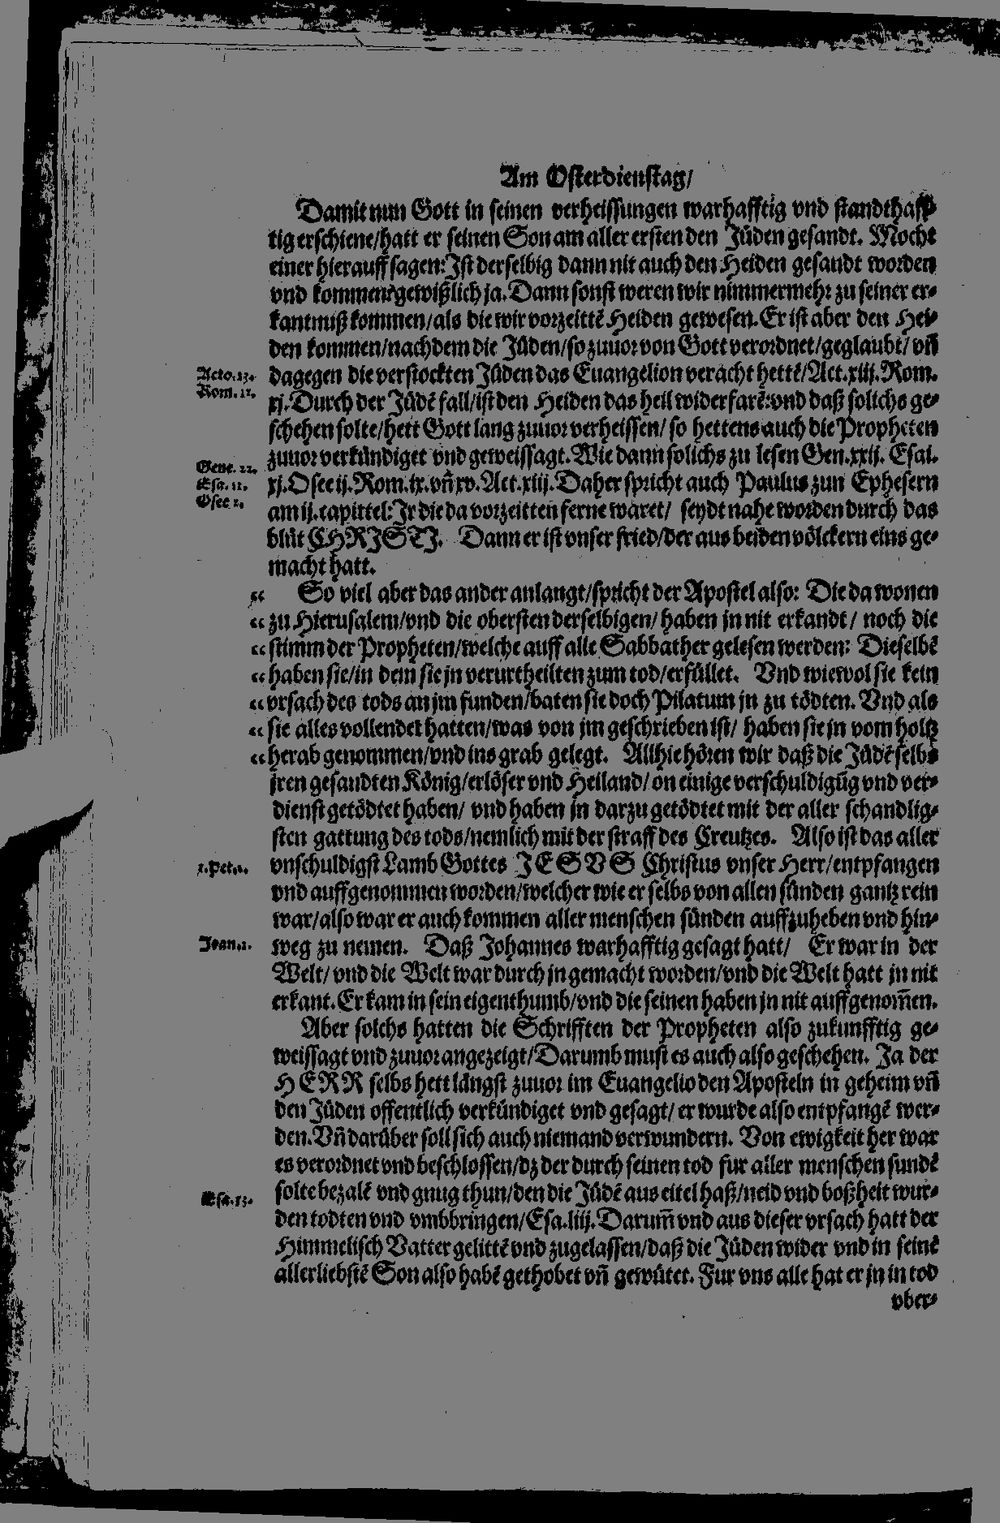 Am Osterdienstag/
Damit nun Gott in seinen verheissungen warhafftig vnd standthaff-
tig erschiene/hatt er seinen Son am aller ersten den Jüden gesandt. Mocht
einer hierauff sagen: Ist derselbig dann nit auch den Heiden gesandt worden
vnd kommen? gewißlich ja. Dann sonst weren wir nimmermehr zu seiner er-
kantniß kommen/als die wir vorzeittē Heiden gewesen. Er ist aber den Hei-
den kommen/nachdem die Jüden/so zuuor von Gott verordnet/geglaubt/vñ
Acto.13. dagegen die verstockten Jüden das Euangelion veracht hettē/Act.xiij.Rom.
Rom.11. xj. Durch der Jüdē fall/ist den Heiden das heil widerfarē: vnd daß solichs ge-
schehen solte/hett Gott lang zuuor verheissen/ so hettens auch die Propheten
Gene.22. zuuor verkündiget vnd geweissagt. Wie dann solichs zu lesen Gen.xxij. Esai.
Esa.11. xj. Osee ij. Rom.ix. vñ xv. Act.xiij. Daher spricht auch Paulus zun Ephesern
Osee 2. am ij. capittel: Ir die da vorzeitten ferne waret/ seydt nahe worden durch das
blüt CHRISTI. Dann er ist vnser fried/der aus beiden völckern eins ge-
macht hatt.
“ So viel aber das ander anlangt/spricht der Apostel also: Die da wonen
“ zu Hierusalem/vnd die obersten derselbigen/ haben jn nit erkandt/ noch die
“ stimm der Propheten/welche auff alle Sabbather gelesen werden: Dieselbē
“ haben sie/in dem sie jn verurtheilten zum tod/erfüllet. Vnd wiewol sie kein
“ vrsach des tods an jm funden/baten sie doch Pilatum jn zu tödten. Vnd als
“ sie alles vollendet hatten/was von jm geschrieben ist/ haben sie jn vom holtz
“ herab genommen/vnd ins grab gelegt. Allhie hören wir daß die Jüdē selbs
jren gesandten König/erlöser vnd Heiland/ on einige verschuldigūg vnd ver-
dienst getödtet haben/ vnd haben jn darzu getödtet mit der aller schandlig-
sten gattung des tods/nemlich mit der straff des Creutzes. Also ist das aller
1.Pet.1. vnschuldigst Lamb Gottes JESVS Christus vnser Herr/entpfangen
vnd auffgenommen worden/welcher wie er selbs von allen sünden gantz rein
war/also war er auch kommen aller menschen sünden auffzuheben vnd hin-
Joan.1. weg zu nemen. Daß Johannes warhafftig gesagt hatt/ Er war in der
Welt/ vnd die Welt war durch jn gemacht worden/vnd die Welt hatt jn nit
erkant. Er kam in sein eigenthumb/vnd die seinen haben jn nit auffgenom̄en.
Aber solchs hatten die Schrifften der Propheten also zukunfftig ge-
weissagt vnd zuuor angezeigt/Darumb must es auch also geschehen. Ja der
HERR selbs hett längst zuuor im Euangelio den Aposteln in geheim vñ
den Jüden offentlich verkündiget vnd gesagt/ er wurde also entpfangē wer-
den. Vñ darüber soll sich auch niemand verwundern. Von ewigkeit her war
es verordnet vnd beschlossen/dz der durch seinen tod fur aller menschen sundē
Esa.53. solte bezalē vnd gnug thun/den die Jüdē aus eitel haß/neid vnd boßheit wur-
den todten vnd vmbbringen/Esa.liij. Darum̄ vnd aus dieser vrsach hatt der
Himmelisch Vatter gelittē vnd zugelassen/daß die Jüden wider vnd in seinē
allerliebstē Son also habē gethobet vñ gewütet. Fur vns alle hat er jn in tod
vber-